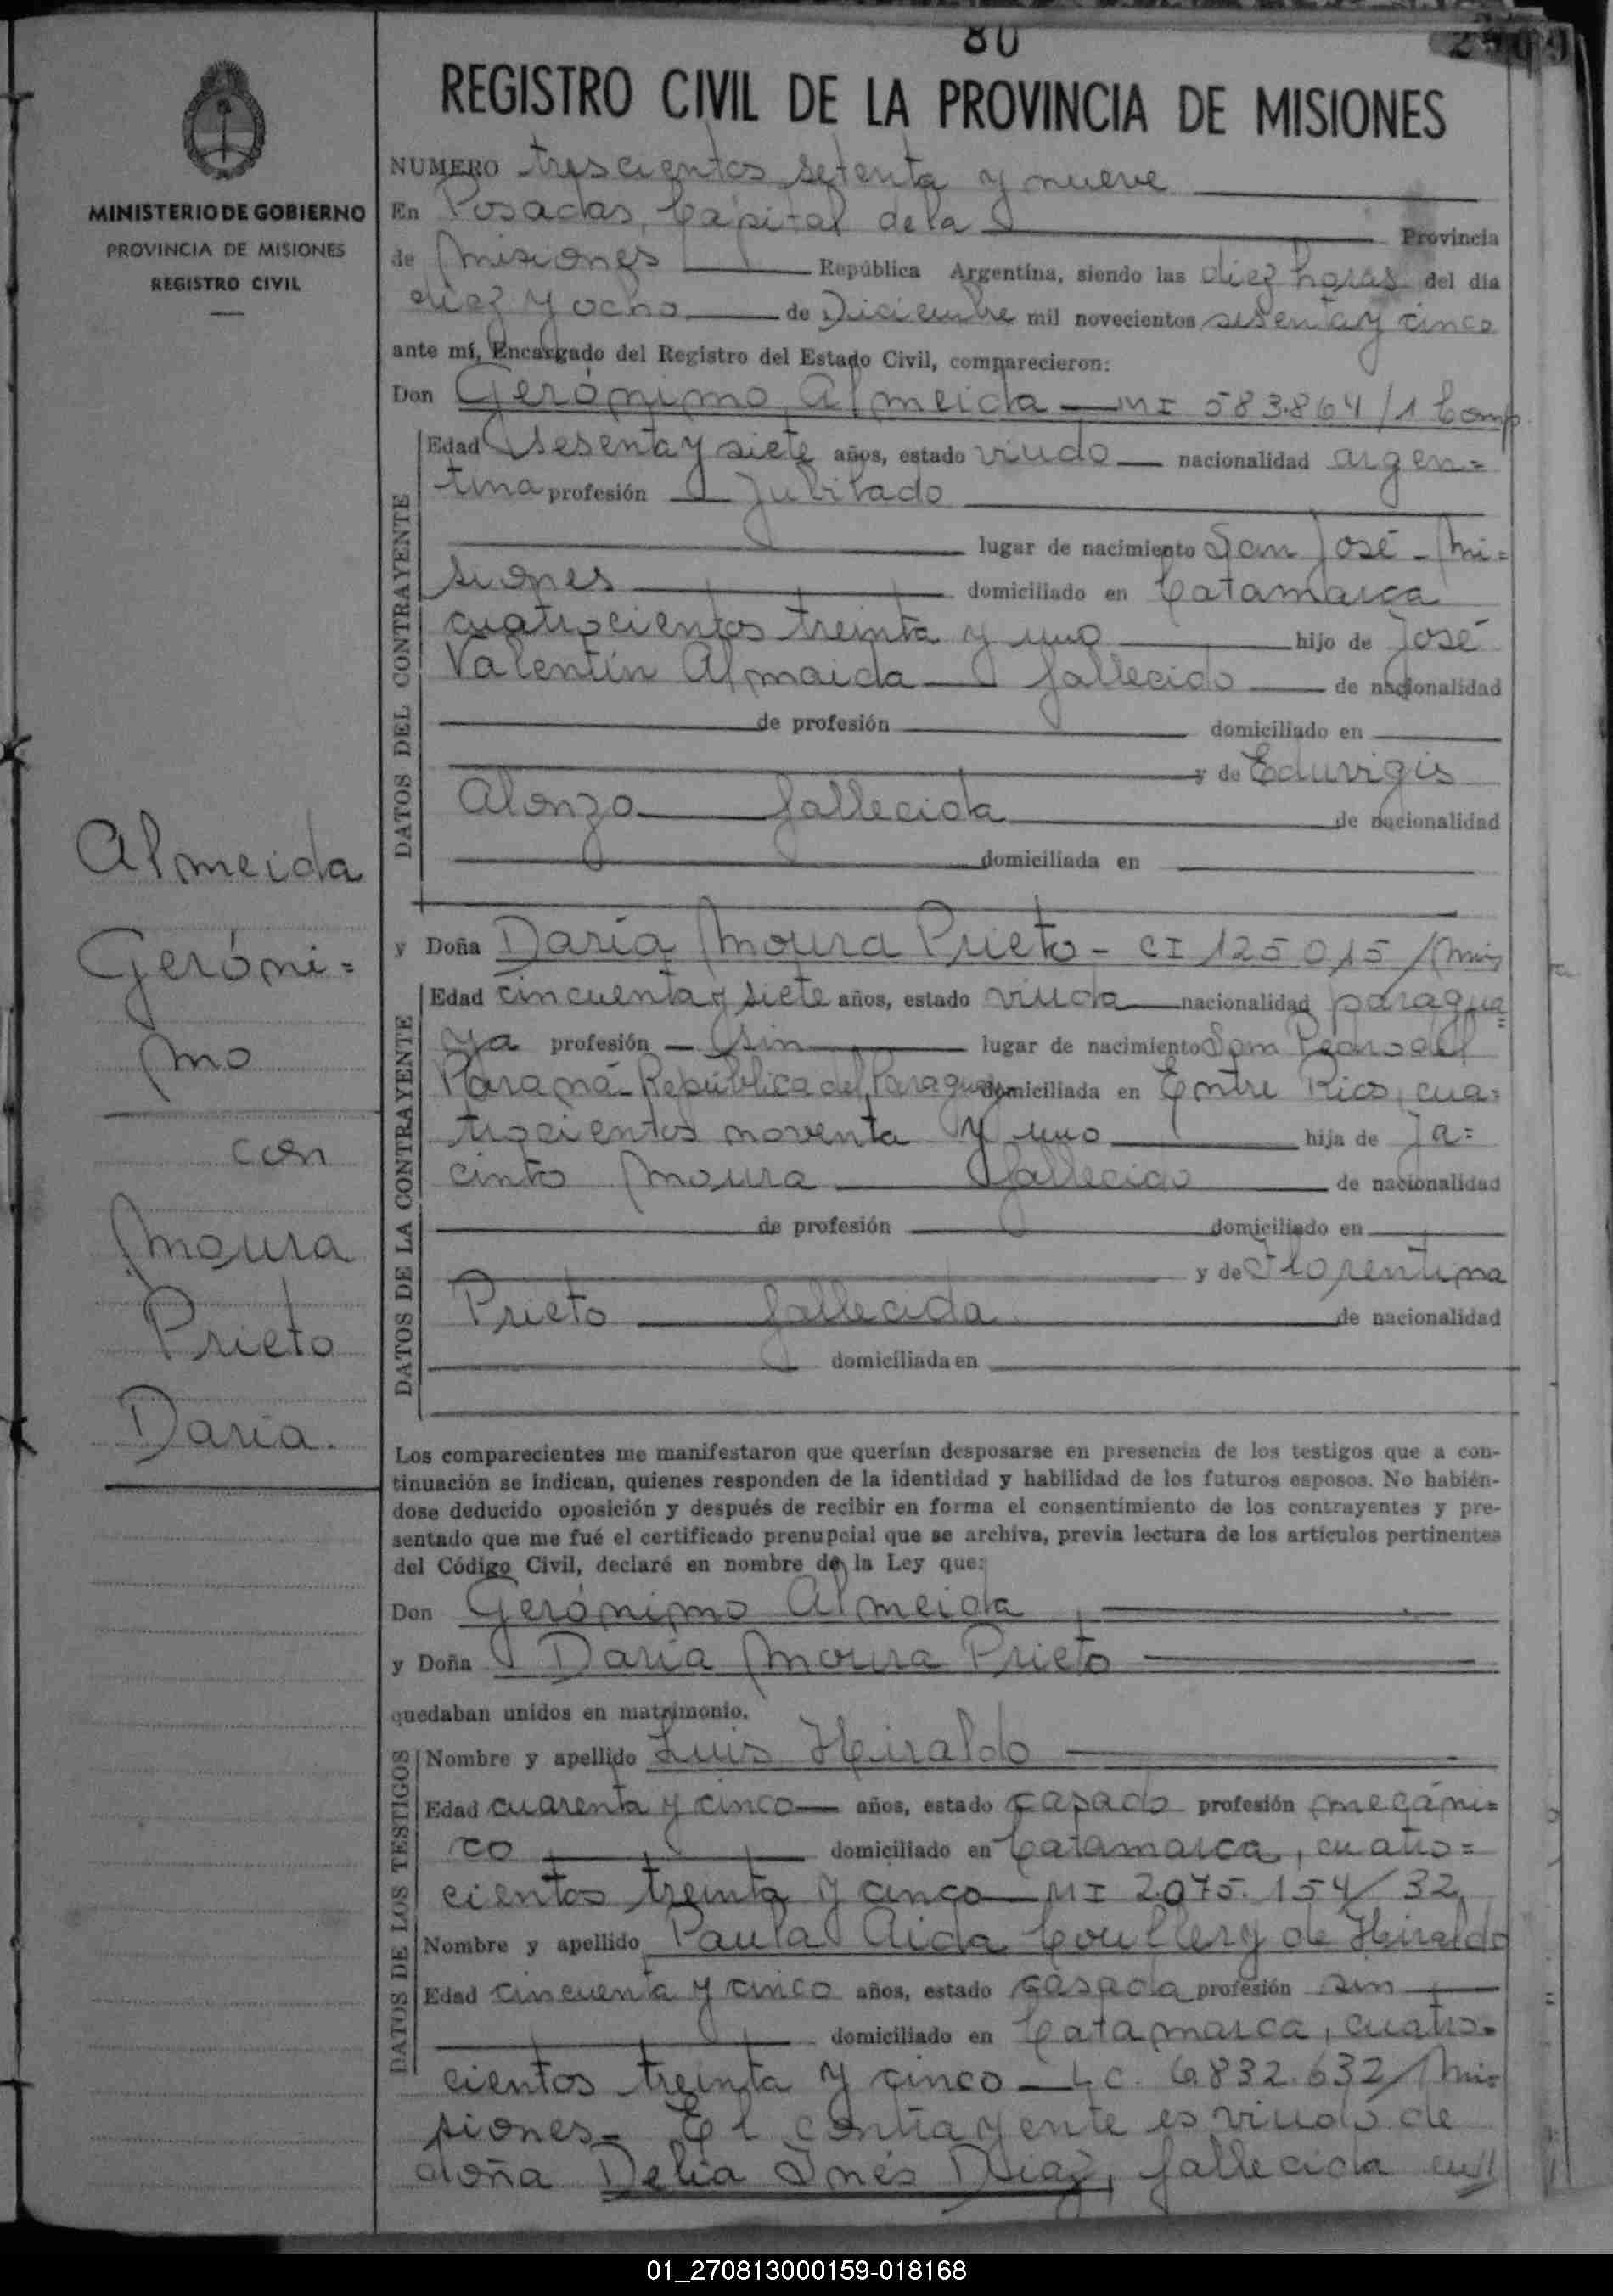 80
REGISTRO CIVIL DE LA PROVINCIA DE MISIONES
MINISTERIO DE GOBIERNO
PROVINCIA DE MISIONES
REGISTRO CIVIL
NUMERO trescientos setenta y nueve
En Posadas, Capital de la Provincia
de Misiones República Argentina, siendo las diez horas del día
diez y ocho de Diciembre mil novecientos sesenta y cinco
ante mí, Encargado del Registro del Estado Civil, comparecieron:
Don Gerónimo Almeida — MI 583.864/1 Comp.
DATOS DEL CONTRAYENTE
Edad sesenta y siete años, estado viudo nacionalidad argen=
tina profesión Jubilado
lugar de nacimiento San José - Mi=
siones domiciliado en Catamarca
cuatrocientos treinta y uno hijo de José
Valentín Almaida fallecido de nacionalidad
de profesión domiciliado en
y de Eduvigis
Alonzo fallecida de nacionalidad
domiciliada en
Almeida
Geróni=
mo
con
Moura
Prieto
Daria.
y Doña Daría Moura Prieto - CI 125015/Mis
DATOS DE LA CONTRAYENTE
Edad cincuenta y siete años, estado viuda nacionalidad paragua=
ya profesión — sin lugar de nacimiento San Pedro del
Paraná - República del Paraguay domiciliada en Entre Rios, cua=
trocientos noventa y uno hija de Ja=
cinto Moura fallecido de nacionalidad
de profesión domiciliado en
y de Florentina
Prieto fallecida de nacionalidad
domiciliada en
Los comparecientes me manifestaron que querían desposarse en presencia de los testigos que a con-
tinuación se indican, quienes responden de la identidad y habilidad de los futuros esposos. No habién-
dose deducido oposición y después de recibir en forma el consentimiento de los contrayentes y pre-
sentado que me fué el certificado prenupcial que se archiva, previa lectura de los artículos pertinentes
del Código Civil, declaré en nombre de la Ley que:
Don Gerónimo Almeida
y Doña Daría Moura Prieto
quedaban unidos en matrimonio.
DATOS DE LOS TESTIGOS
Nombre y apellido Luis Hiraldo
Edad cuarenta y cinco años, estado casado profesión mecáni=
co domiciliado en Catamarca, cuatro=
cientos treinta y cinco — MI 2.075.154/32
Nombre y apellido Paula Aida Coullery de Hiraldo
Edad cincuenta y cinco años, estado casada profesión sin
domiciliado en Catamarca, cuatro=
cientos treinta y cinco — LC. 6.832.632/Mi=
siones.- El contrayente es viudo de
doña Delia Inés Díaz, fallecida en//
01_270813000159-018168